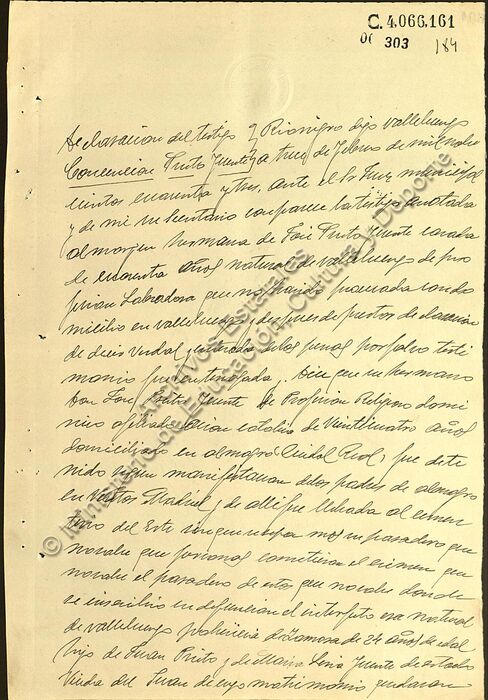 C.4.066.161
303
184
Declaracion del testigo Rionegro digo Valleluengo
Concencion Prieto Fuente a trece de Febrero de mil nobe
cientos cuarenta y tres, ante el Sr Juez municipal
y de mi el Secretario comparece la testigo anotada
al margen hermana de José Prieto Fuente casada
de cuarenta años natural de Valleluengo de pro
fesion Labradora que no ha sido procesada con do
micilio en Valleluengo y despues de
de decir verdad y enterada de las penas por falso testi
monio fue
Dice que su hermano
Don José Prieto Fuente de Profesion Religioso domi
nico afiliado Acion catolica de Veinticuatro años
domiciliado en almagro Ciudad Real, fue dete
nido segun manifestaron de los padres de almagro
en Madrid y de alli fue llebada al cemen
terio del Este sin que sepa mas su paradero que
no sabe que personas cometieron el crimen que
no sabe el paradero de estos que no sabe donde
se inscribio su defuncion el interfeto era natural
de Valleluengo probincia de Zamora de 24 años de edad
hijo de Juan Prieto y de Maria Fuente de estado
Viuda del Juan de cuyo matrimonio quedaron
© Ministerio de Educación, Cultura y Deporte
Archivos Estatales